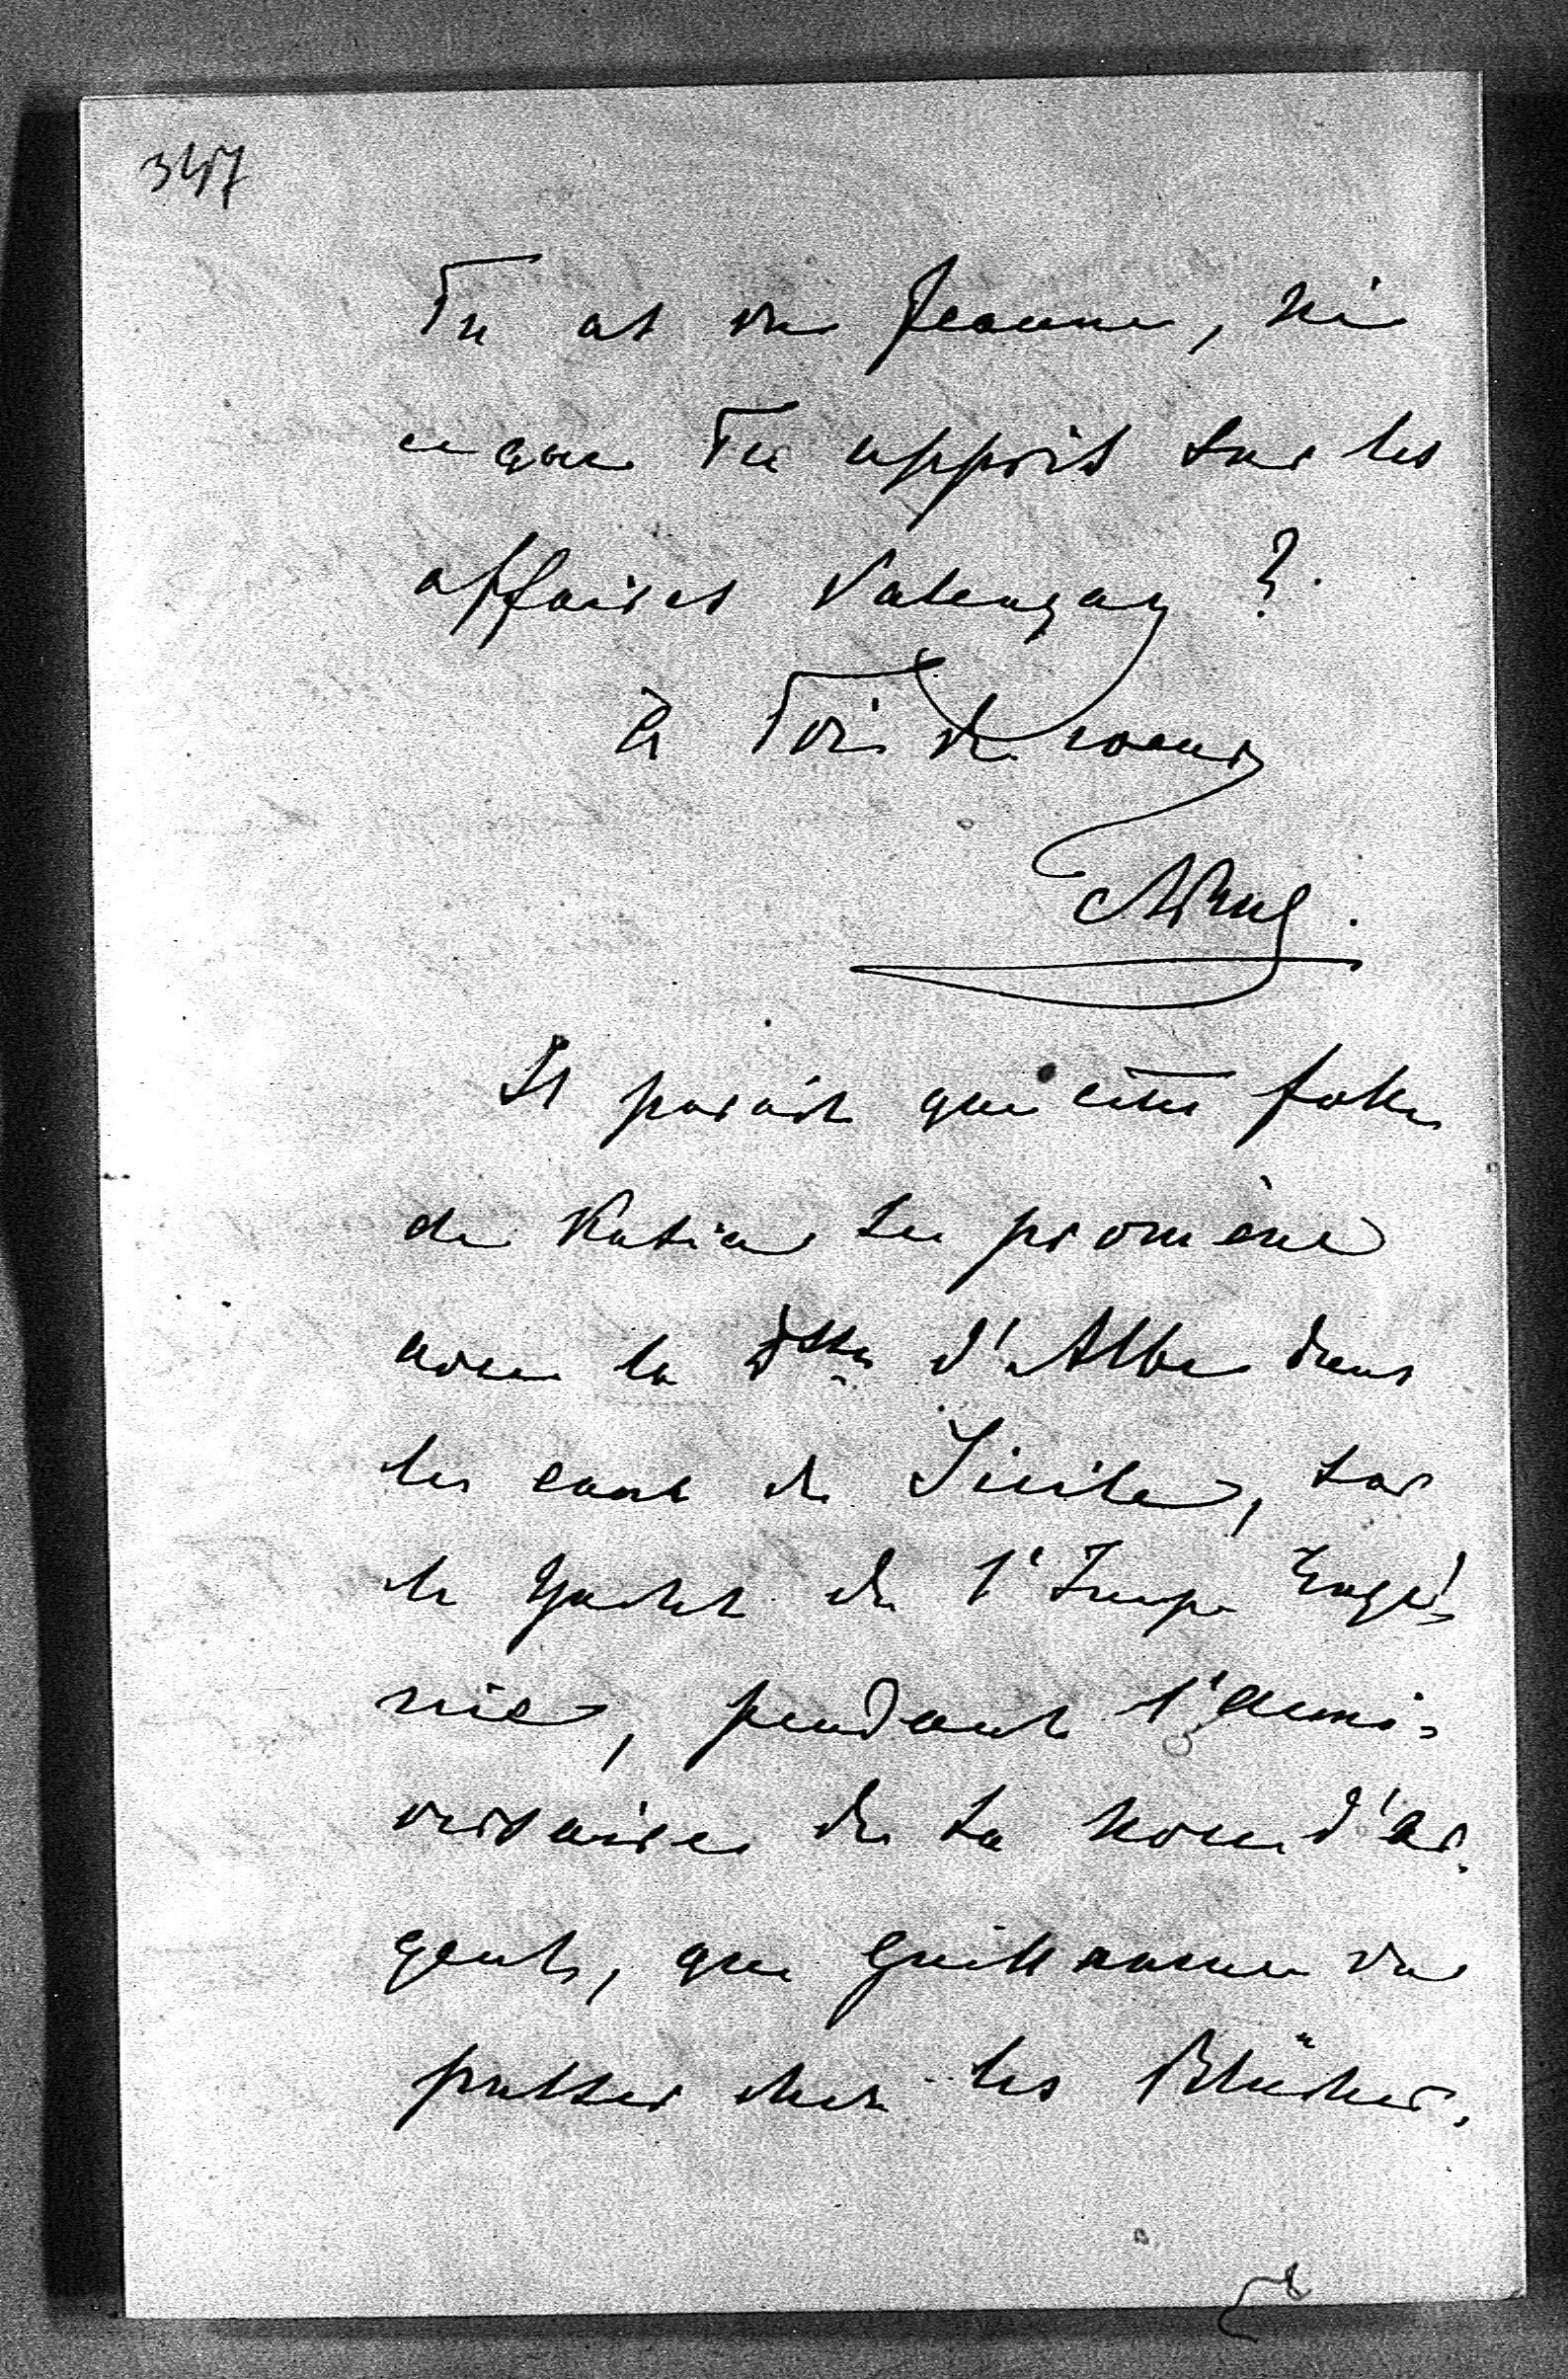 347
Tu as vu Jeanne, ni
ce que Tu appris sur les
affaires Valençay ?
à Toi de coeur
Il parait que cette folle
de Katia se promène
avec la Dsse d'Albe dans
les eaux de Sicile, sur
le Yacht de l'Imp. Eugé-
nie, pendant l'anni-
versaire de sa noce d'ar-
gent, que Guillaume va
passer chez les Blücher.